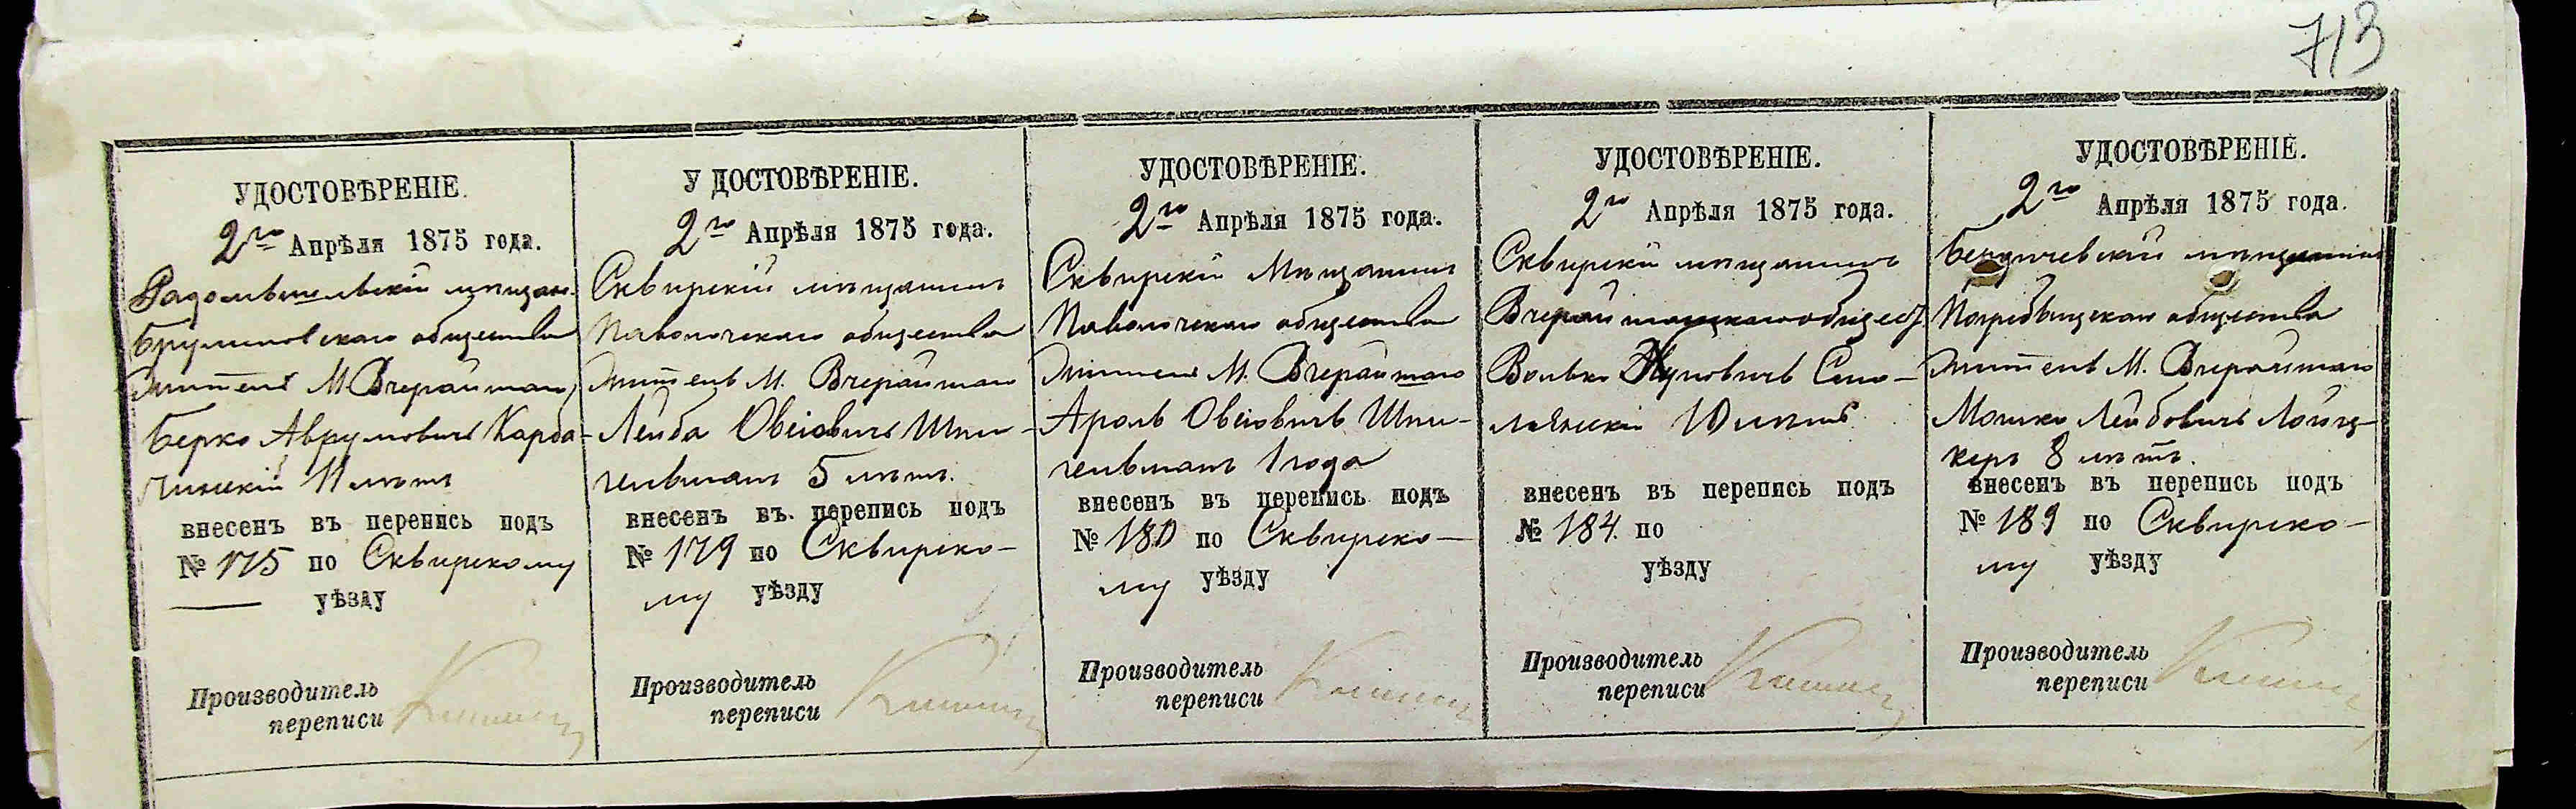 713
УДОСТОВѢРЕНІЕ.
2го Апрѣля 1875 года.
Радомысльскій мѣщан.
Брусиловскаго общества
житель М. Вчерайшаго
Берко Аврумовичъ Карба-
чинскій 11 лѣтъ
внесенъ въ перепись подъ
№ 175 по Сквирскому
уѣзду
Производитель
переписи
У ДОСТОВѢРЕНІЕ.
2го Апрѣля 1875 года.
Сквирскій мѣщанинъ
Паволочскаго общества
житель М. Вчерайшаго
Лейба Овсіовичъ Шпи-
гельманъ 5 лѣтъ.
внесенъ въ перепись подъ
№ 179 по Сквирско-
му уѣзду
Производитель
переписи
УДОСТОВѢРЕНІЕ.
2го Апрѣля 1875 года.
Сквирскій Мѣщанинъ
Паволочскаго общества
житель М. Вчерайшаго
Аронъ Овсіовичъ Шпи-
гельманъ 1 года
внесенъ въ перепись подъ
№ 180 по Сквирско-
му уѣзду
Производитель
переписи
УДОСТОВѢРЕНІЕ.
2го Апрѣля 1875 года.
Сквирскій мѣщанинъ
Вчерайшанскаго общест.
Волько
10 лѣтъ
внесенъ въ перепись подъ
№ 184. по
уѣзду
Производитель
переписи
УДОСТОВѢРЕНІЕ.
2го Апрѣля 1875 года.
Бердичевскій мѣщанинъ
Погребищскаго общества
житель М. Вчерайшаго
Мошко Лейбовичъ
8 лѣтъ.
внесенъ въ перепись подъ
№ 189 по Сквирско-
му уѣзду
Производитель
переписи